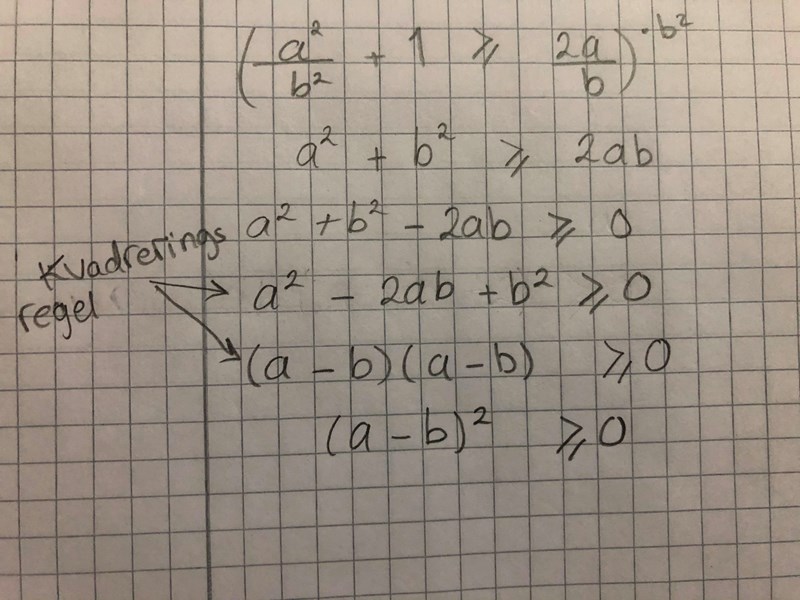 (a²/b² + 1 ⩾ 2a/b) ·b²
a² + b² ⩾ 2ab
a² + b² - 2ab ⩾ 0
Kvadrerings
regel
a² - 2ab + b² ⩾ 0
(a - b)(a - b) ⩾ 0
(a - b)² ⩾ 0